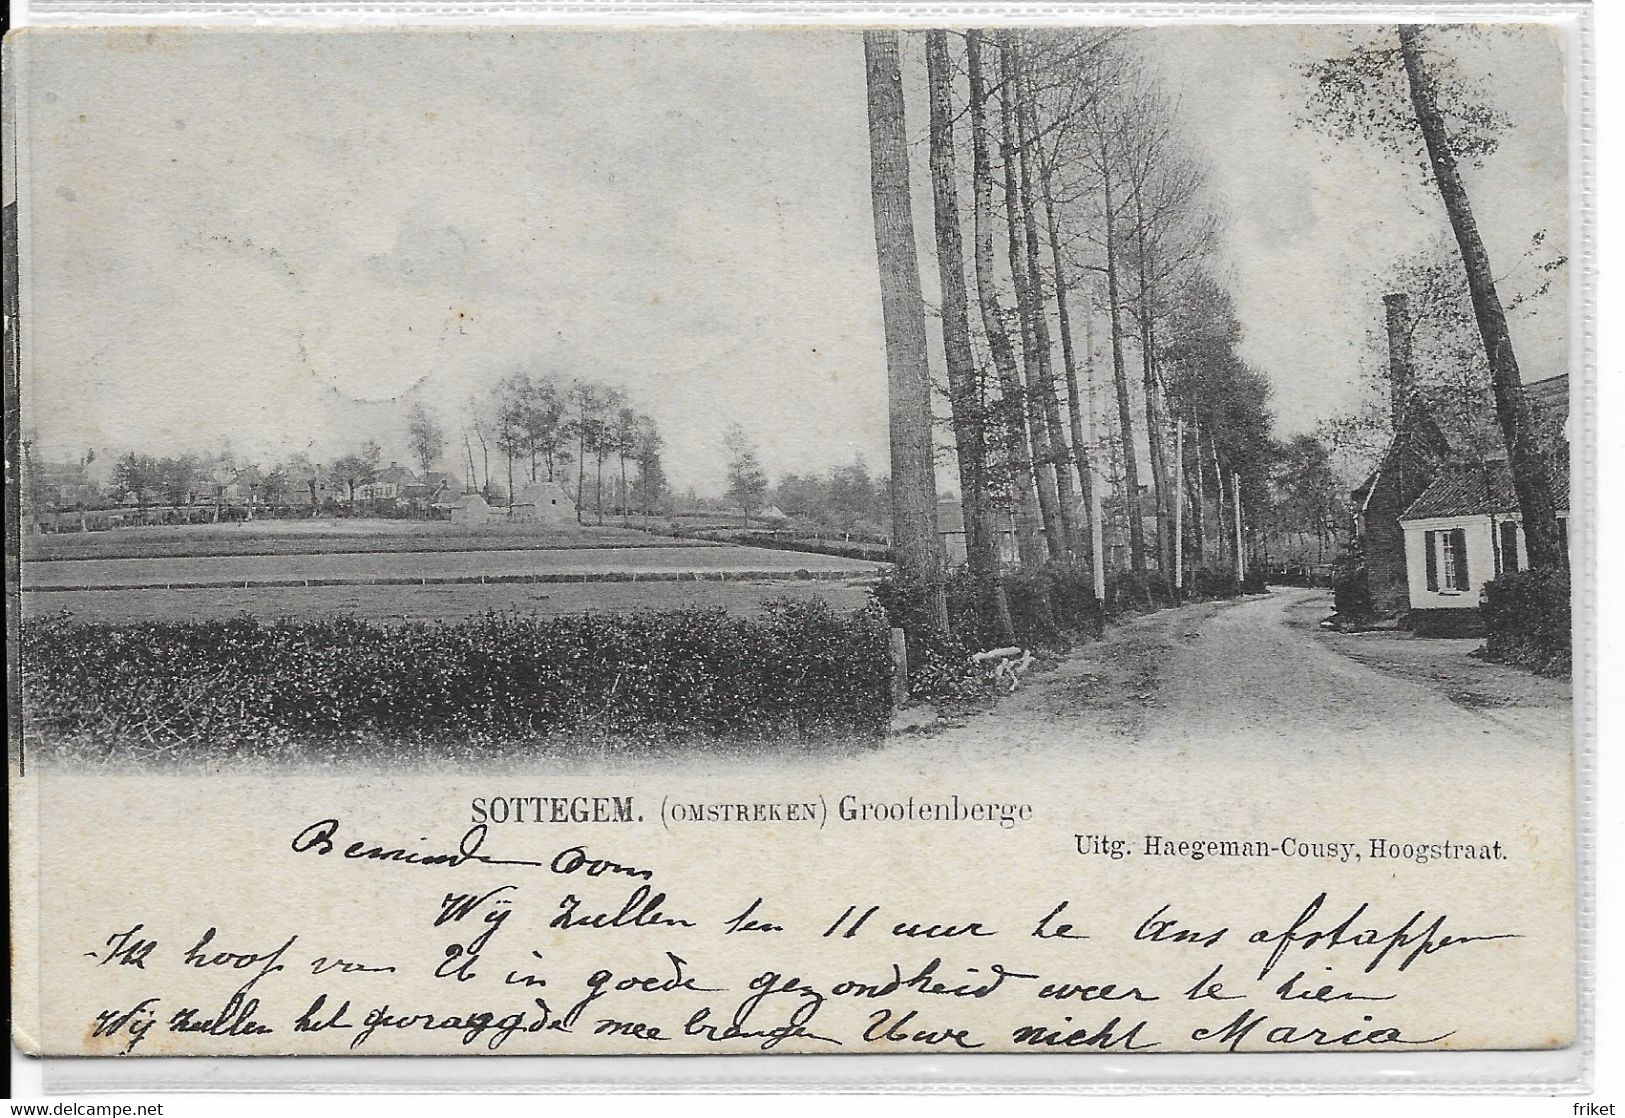 SOTTEGEM. (OMSTREKEN) Grootenberge
Uitg. Haegeman-Cousy, Hoogstraat.
Beminden Oom
Wij zullen ten 11 uur te Ans afstappen
Ik hoop van U in goede gezondheid weer te zien
Wij zullen het gevraagde mee brengen Uwe nicht Maria
delcampe.net
friket